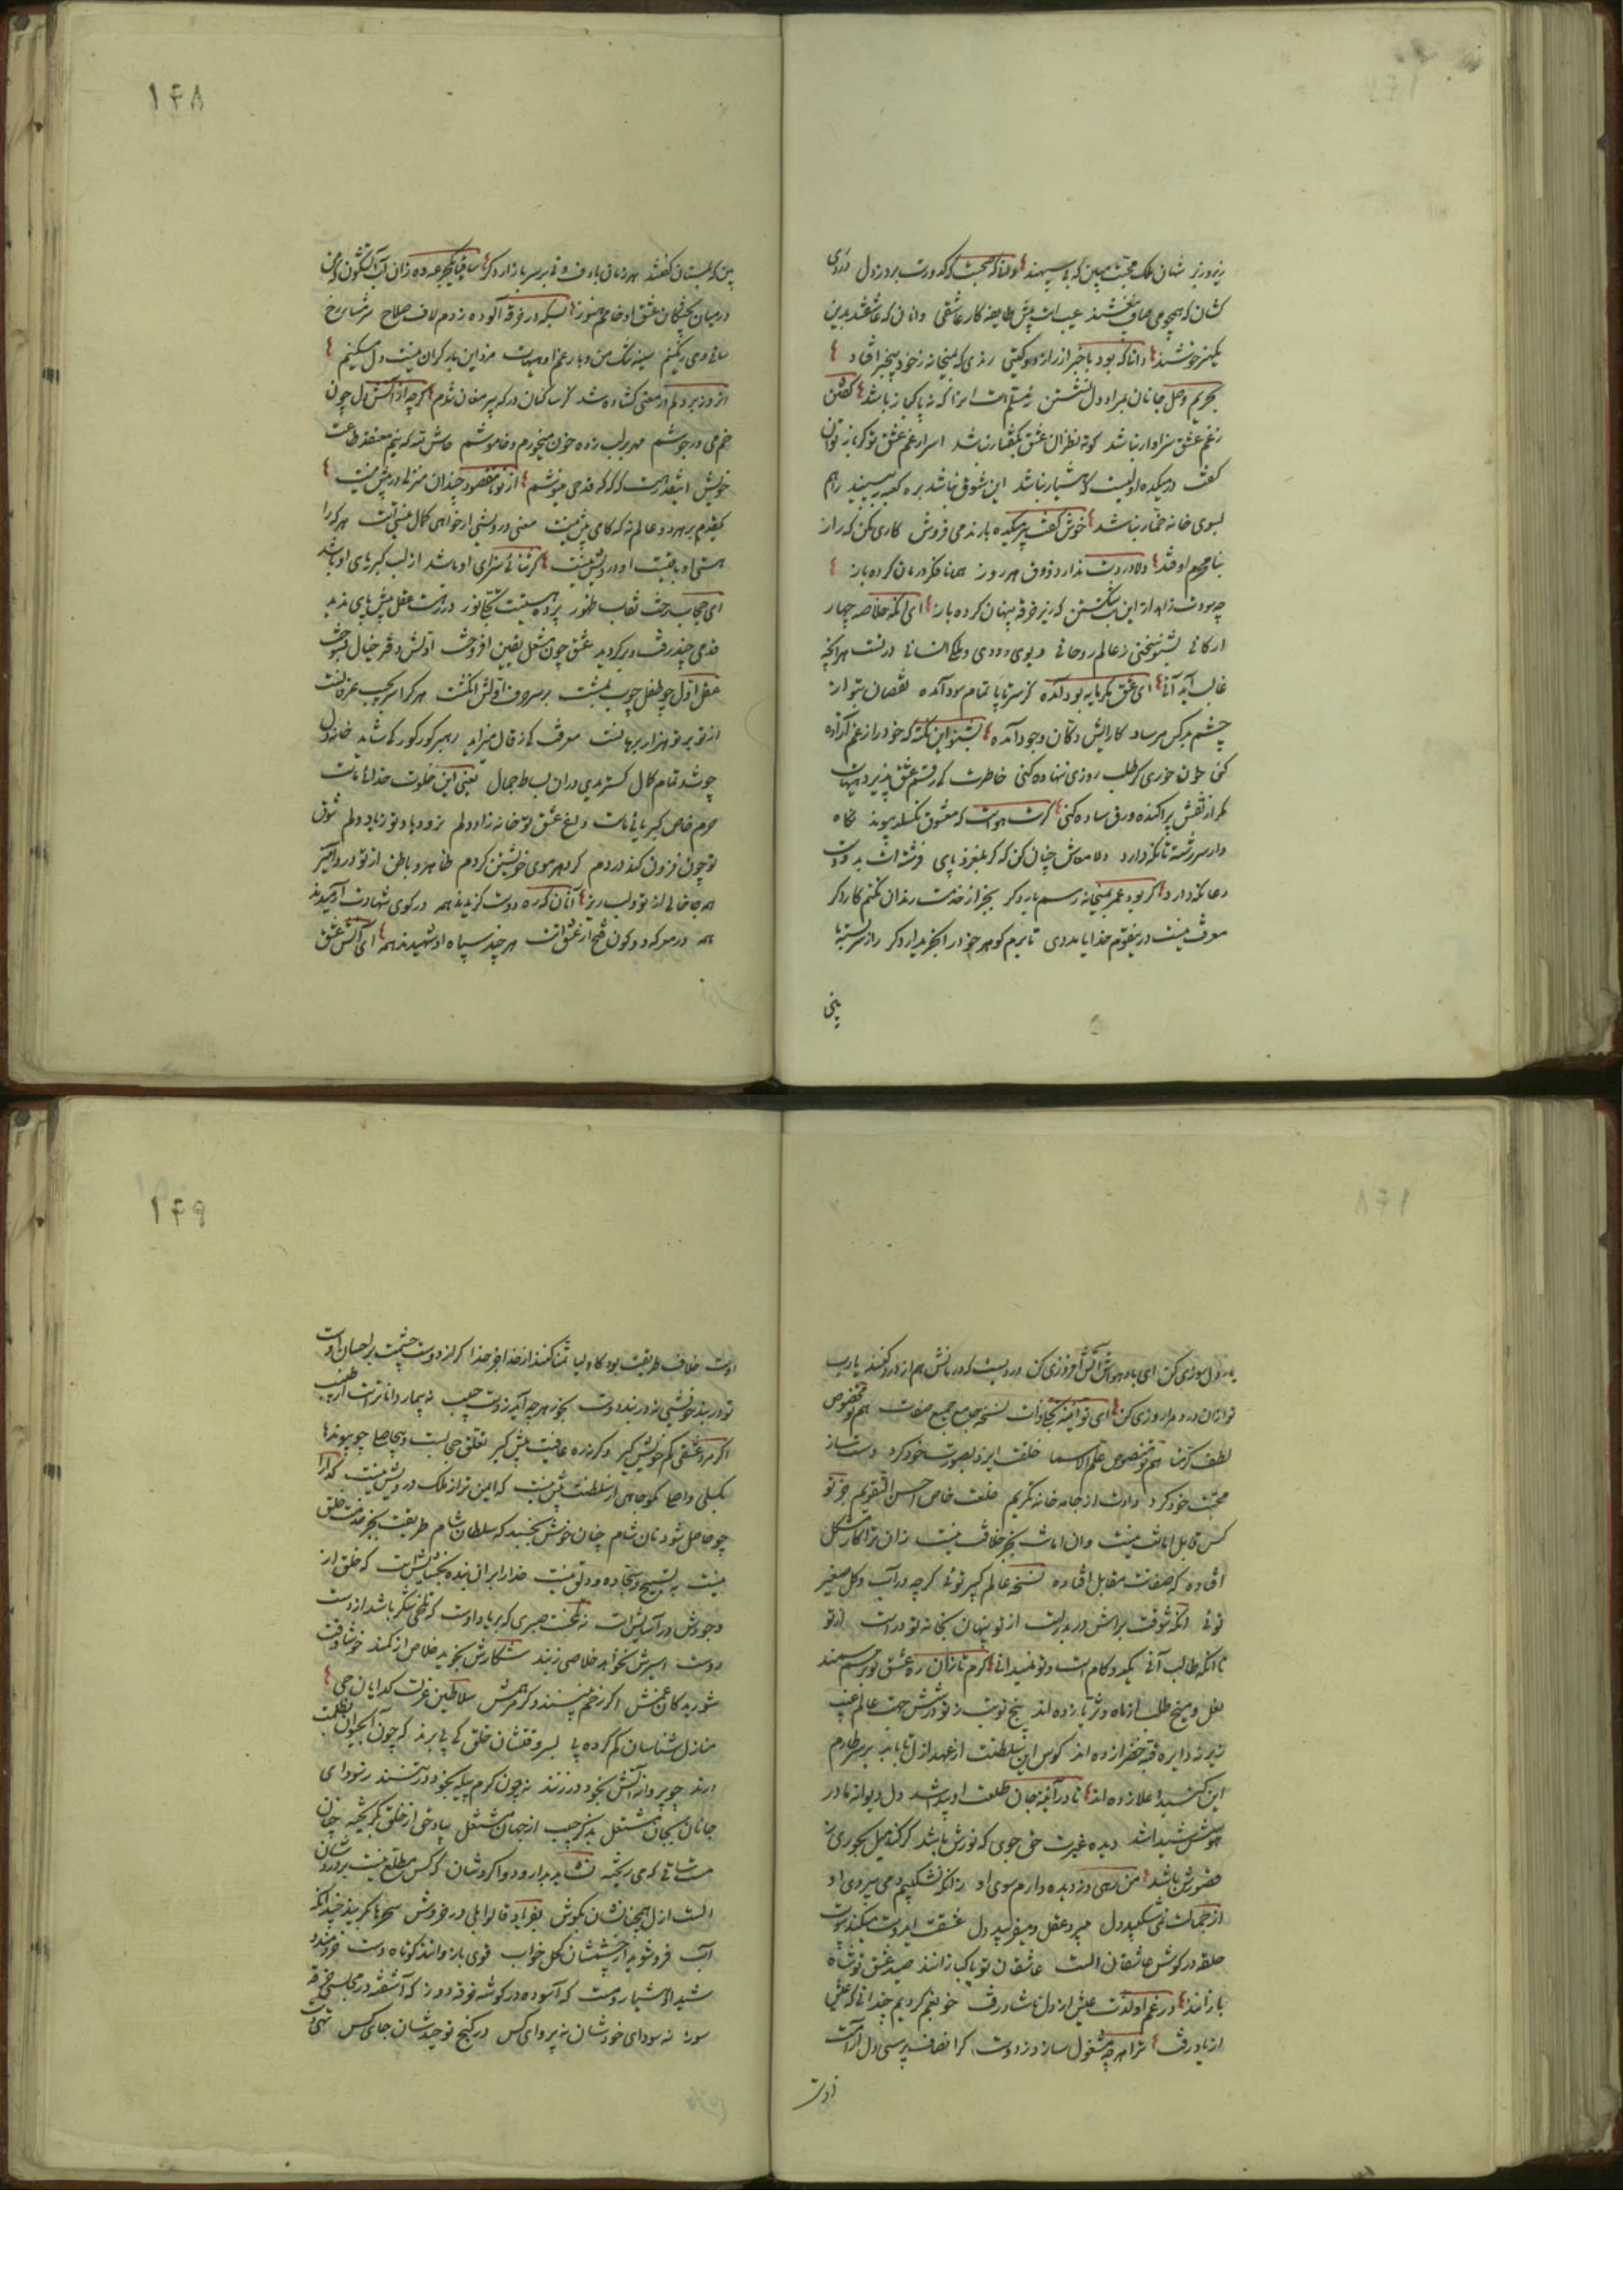 زیر و زبر شهان ملک محبت ببین که بی سپهند دلها که محبت که کدورت برد ز دل دردی
کشان که همچو می صاف بیغشند عیب است پیش طایفه کار عاشقی و انان که عاشقند بدین
یکهنر خوشند دانا که بود با خبر از راز دو گیتی رندی که بمیخانه ز خود بیخبر افتاد
بحریم وصل جانان دل نشستن گفتن
ز غم عشق سزاوار نباشد کوته نظران عشق بگفتار نباشد اسرار غم عشق تو کی باز توان
گفت در میکده او لیست که هشیار نباشد این شوق نباشد بره کعبه ببینید راهم
بسوی خانه خمار نباشد خوش گفت پیر میکده با رند می فروش کاری مکن که راز
بنا محرم اوفتد دلا دردت ندارد ذوق هر روز همانا فکر درمان کرده باز
چه سودت زاهدا از این بت شکستن که زیر خرقه پنهان کرده باز ای آنکه خلاصه چهار
ارکانی بشنو سخنی ز عالم روحانی دیوی و ددی و ملکی انسانی در تست هر آنچه
غالب آید آنی ای عشق که مایه بود آمده کز سر تا پا تمام سود آمده نقصان بتو از
چشم بد کس مرساد کارایش دکان وجود آمده بشنو این نکته که خود را ز غم آزاده
کنی خون خوری گر طلب روزی ننهاده کنی خاطرت کی رقم عشق پذیرد هیهات
مگر از نقش پراکنده ورق ساده کنی گرت هواست که معشوق نگسلد پیوند نگاه
دار سر رشته تا نگه دارد دلا معاش چنان کن که گر بلغزد پای فرشته ات بدو دست
دعا نگه دارد گر بود عمر بمیخانه رسم بار دگر بجز از خدمت رندان نکنم کار دگر
معرفت نیست درین قوم خدایا مددی تا برم گوهر خود را بخریدار دگر راز سربسته
۱۴۸
بین که بدستان گفتند هر زمان با دف و نی بر سر بازار دگر ساقیا یکجرعه ده زان آب آتشگون که من
در میان پختگان عشق او خامم هنوز بسکه در خرقه آلوده زدم لاف صلاح شرمسار رخ
ساقی و می رنگینم سینه تنگ من و بار غم او هیهات مرد این بار گران نیست دل مسکینم
آن روز بر دلم در معنی گشاده شد کز ساکنان درگه پیر مغان شدم گرچه از آتش دل چون
خم می در جوشم مهر بر لب زده خون میخورم و خاموشم حاش لله که نیم معتقد طاعت
خویش اینقدر هست که گه گه قدحی مینوشم از تو تا مقصود چندان منزلی در پیش نیست
یکقدم بر هر دو عالم نه که کامی بیش نیست معنی درویشی ار خواهی کمال نیستیست هر که را
هستی او باقیست او درویش نیست گر ثنائی سزای او باشد از لب کبریای او باشد
ای حجاب رخت نقاب ظهور پرده هستیت تجلی نور در رهت عقل پیش پای ندید
قدمی چند رفت و بر گردید عشق چون مشعل یقین افروخت آتش دفتر خیال بسوخت
عقل اول چو طفل چوب بمشت بر سر حرف اولش انگشت هر که را سر بجیب عرفانست
از تو بر تو هزار برهانست معرفت کی ز قال میزاید رهبر کور کور کی شاید خانه دل
چو شد تمام کمال کستریدی در ان بساط جمال یعنی این خلوت خدائی ماست
حرم خاص کبریائی ماست داغ عشق تو خانه زاد دلم نرود یاد تو ز یاد دلم شوق
تو چون فزون کند دردم گرد هر موی خویشتن گردم ظاهر و باطن از تو درد انگیز
همه جا خالی از تو و لب ریز آنان که ره دوست گزیدند همه در کوی شهادت آرمیدند
همه در معرکه دو کون فتح از عشق است هر چند سپاه او شهیدند همه ای آتش عشق
دل سوزی کن ای باد هوش آتش افروزی کن دردیست که درمانش هم از درد کنند یا رب
تو از ان درد مرا روزی کن ای تو آئینه تجلی ذات نسخه جامع جمیع صفات هم تو مخصوص
لطف کرمنا هم تو منصوص علم الاسما خلقت ایزد بصورت خود کرد دست ساز
محبت خود کرد دادت از جامه خانه تکریم خلعت خاص احسن التقویم جز تو
کس قابل امانت نیست وان امانت بجز خلافت نیست زان ترا کار مشکل
افتاده که صفات مقابل افتاده نسخه عالم کبیر توئی گرچه در آب و گل صغیر
توئی آنکه شوقت براش در بدر است از تو پنهان بخانه تو در است از تو
تا آنکه طالب آنی یکدو کام است و تو نمیدانی کرم تازان ره عشق تو بر سم سمند
نعل و میخ طلب از ماه و ثریا زده اند پنج نوبت ز تو در شش جهت عالم غیب
زیر نه دایره قبه خضرا زده اند کوس این سلطنت از عهد ازل تا بابد بر سر طارم
این گنبد اعلا زده اند تا در آئینه جان طلعت او پیدا شد دل دیوانه ما در
هوسش شیدا شد دیده غیرت حق جوی که نورش باشد گر کند میل بحوری ز
قصورش باشد من رهی دزدیده دارم سوی او زانکه نشکیبم دمی بیروی او
از جمالت نمی شکیبد دل میبرد عقل و میفریبد دل عشقت ای دوست میکند پیوست
حلقه در گوش عاشقان الست عاشقان تو پاک بازانند صید عشق تو شاه
بازانند در غم او لذت عیش از دل ناشاد رفت خو بغم کردیم چندانی که عیش
از یاد رفت ترا هر چه مشغول سازد ز دوست گر انصاف پرسی دل آرامت
اوست
۱۴۹
اوست خلاف طریقت بود کاولیا تمنا کنند از خدا جز خدا گر از دوست چشمت بر احسان اوست
تو در بند خویشی نه در بند دوست بخور هر چه آید ز دست حبیب نه بیمار داناتر است از طبیب
اگر مرد عشقی کم خویش گیر وگرنه ره عافیت پیش گیر تعلق حجابست و بیحاصلی چو پیوندها
بگسلی واصلی مگو جاهی از سلطنت بیش نیست که ایمن تر از ملک درویش نیست گدا را
چو حاصل شود نان شام چنان خوش بخسبد که سلطان شام طریقت بجز خدمت خلق
نیست به تسبیح و سجاده و دلق نیست خدا را بر ان بنده بخشایش است که خلق از
وجودش در آسایش است نه تلخست صبری که بر یاد اوست که تلخی شکر باشد از دست
دوست اسیرش نخواهد خلاصی ز بند شکارش نجوید خلاص از کمند خوشا وقت
شوریدگان غمش اگر زخم بینند و گر مرهمش سلاطین عزلت گدایان حی
منازل شناسان گم کرده پی بسر وقتشان خلق کی پی برند که چون آب حیوان بظلمت
درند چو پروانه آتش بخود در زنند نه چون کرم پیله بخود بر تنند ز سودای
جانان بجان مشتغل بذکر حبیب از جهان مشتغل بیاد حق از خلق بگریخته چنان
مست ساقی که می ریخته نشاید بدارو دوا کردشان که کس مطلع نیست بر دردشان
الست از ازل همچنانشان بگوش بفریاد قالوا بلی در خروش سحرها بگریند چندانکه
آب فرو شوید از چشمشان کحل خواب قوی بازوانند کوتاه دست خردمند
شیدا و هشیار و مست که آسوده در گوشه خرقه دوز که آشفته در مجلسی خرقه
سوز نه سودای خودشان نه پروای کس در کنج توحیدشان جای کس